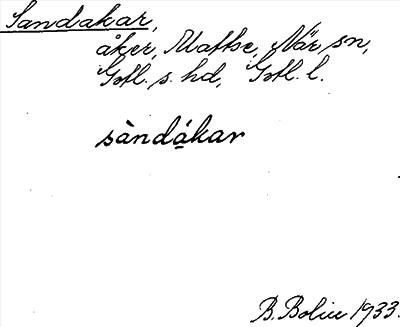 Sandakar,
åker, Mattse, När sn,
Gotl. s. hd, Gotl. l.
sàndá̱kar
B. Bolin 1933.